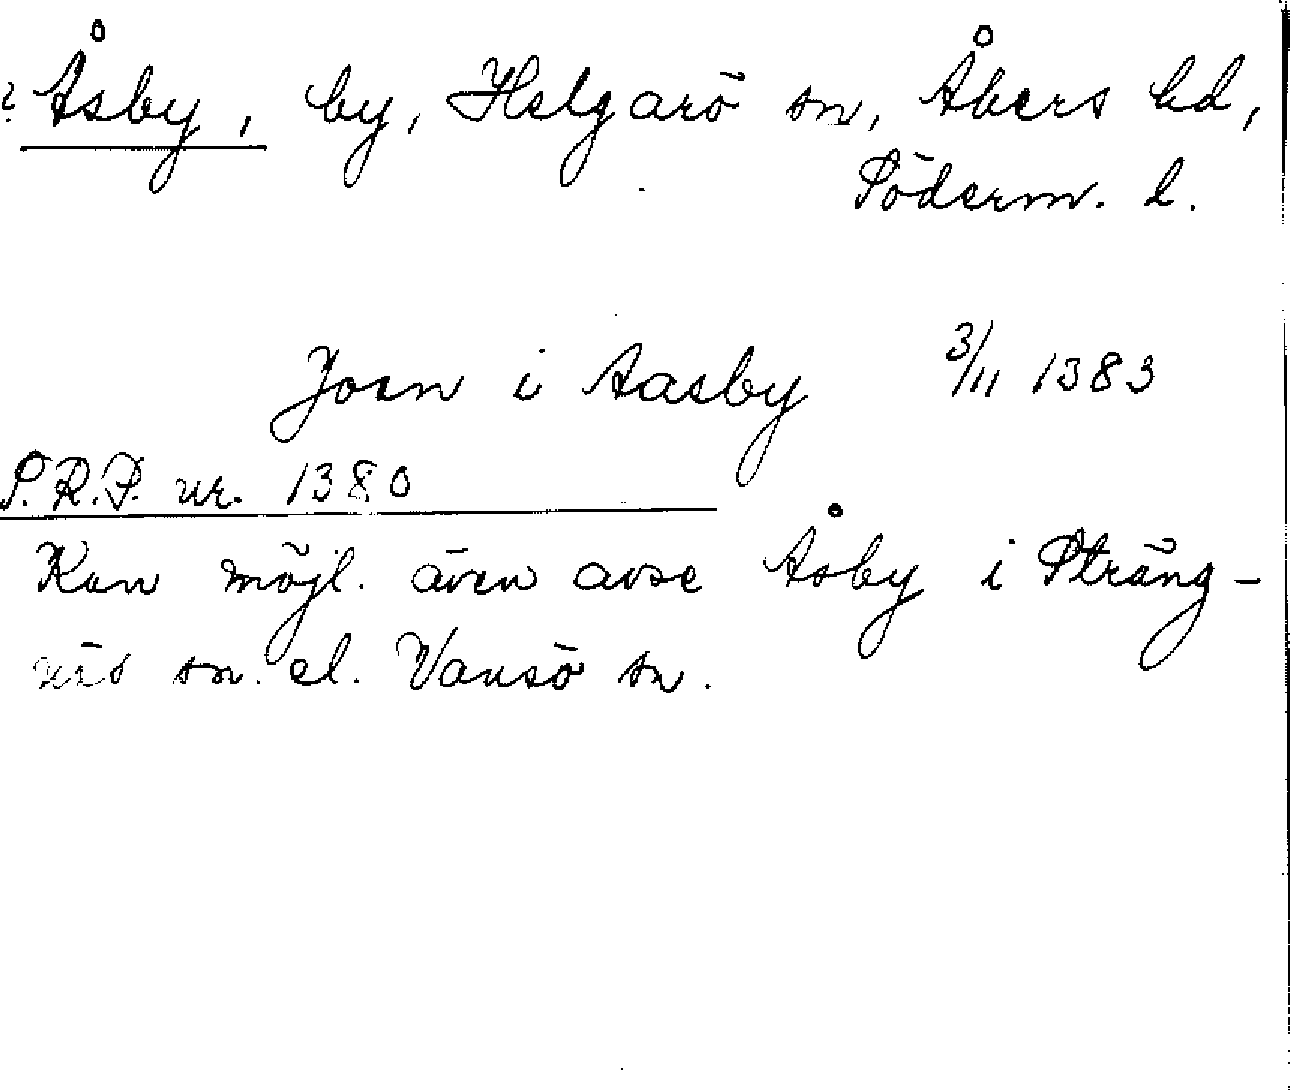 ? Åsby, by, Helgarö sn, Åkers hd,
Söderm. l.
Joen i Aasby 3/11 1383
S.R.P. nr. 1380
Kan möjl. även avse Åsby i Sträng-
näs sn. el. Vansö sn.